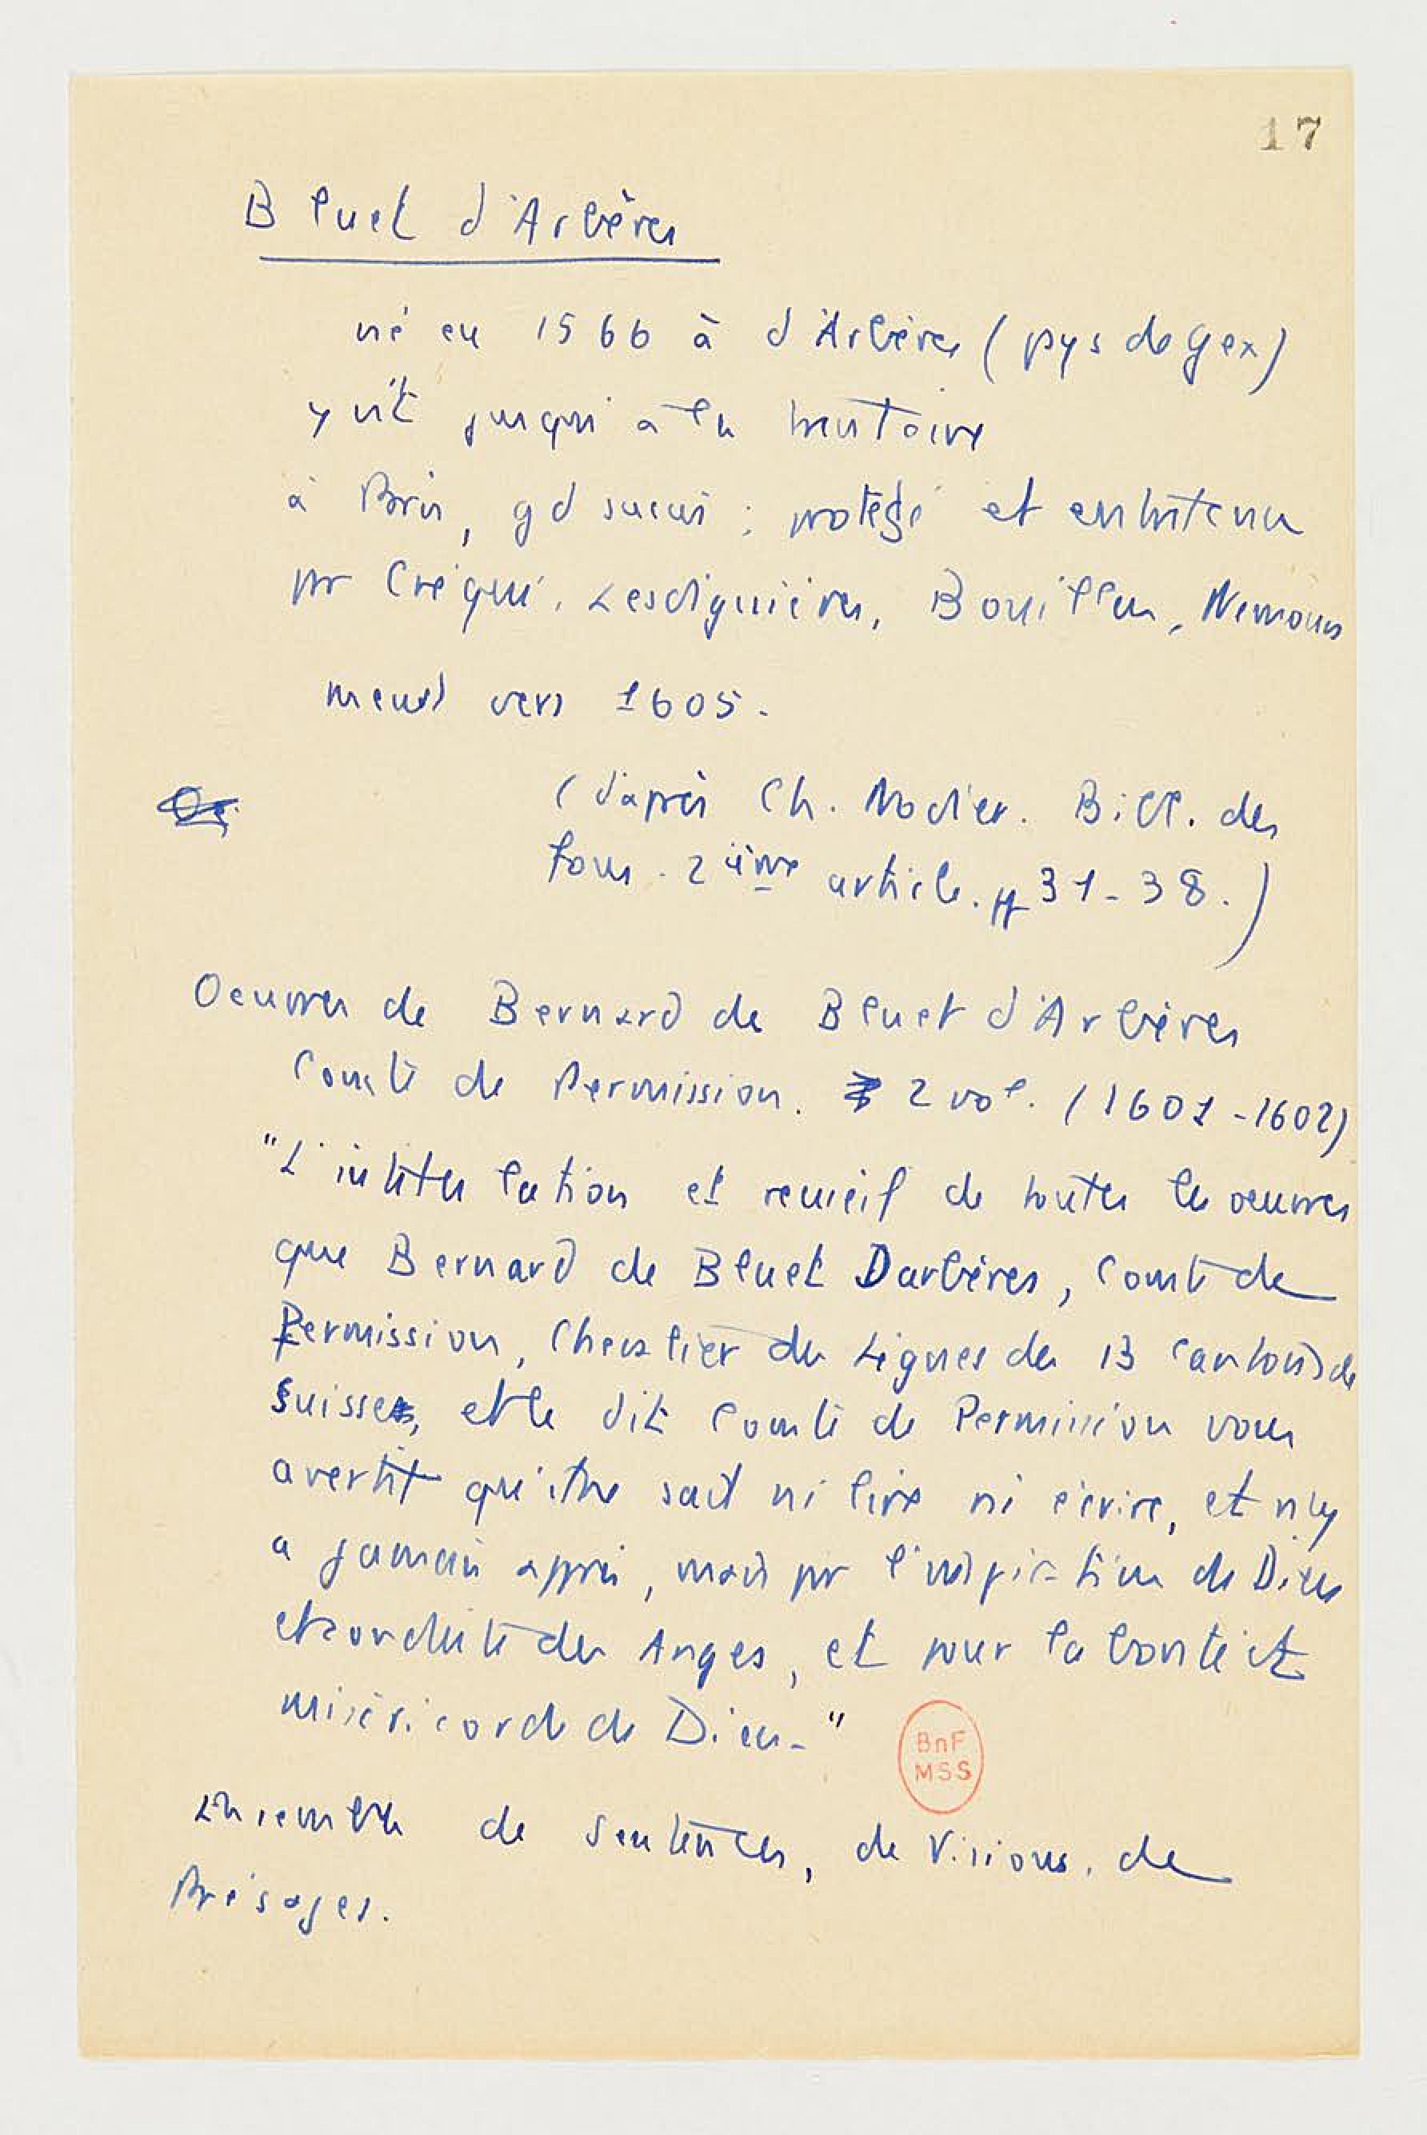 17
Bluet d'Arbères
né en 1566 à d'Arbères (pays de Gex)
y vit jusqu'à la trentaine
à Paris, gd succès ; protégé et entretenu
par Créqui, Lesdiguières, Bouillon, Nemours
meurt vers 1605.
(d'après Ch. Nodier. Bibl. des
fous. 2ième article. pp 31-38.)
Oeuvres de Bernard de Bluet d'Arbères
Comte de Permission. 2 vol. (1601-1602)
"L'intitulation et recueil de toutes les oeuvres
que Bernard de Bluet Darbères, Comte de
Permission, Chevalier des Ligues des 13 Cantons de
Suisse, et le dit Comte de Permission vous
avertit qu'il ne sait ni lire ni écrire, et n'y
a jamais appris, mais par l'inspiration de Dieu
et conduite des Anges, et pour la bonté et
miséricorde de Dieu-"
BnF
MSS
Ensemble de Sentences, de Visions, de
Présages.